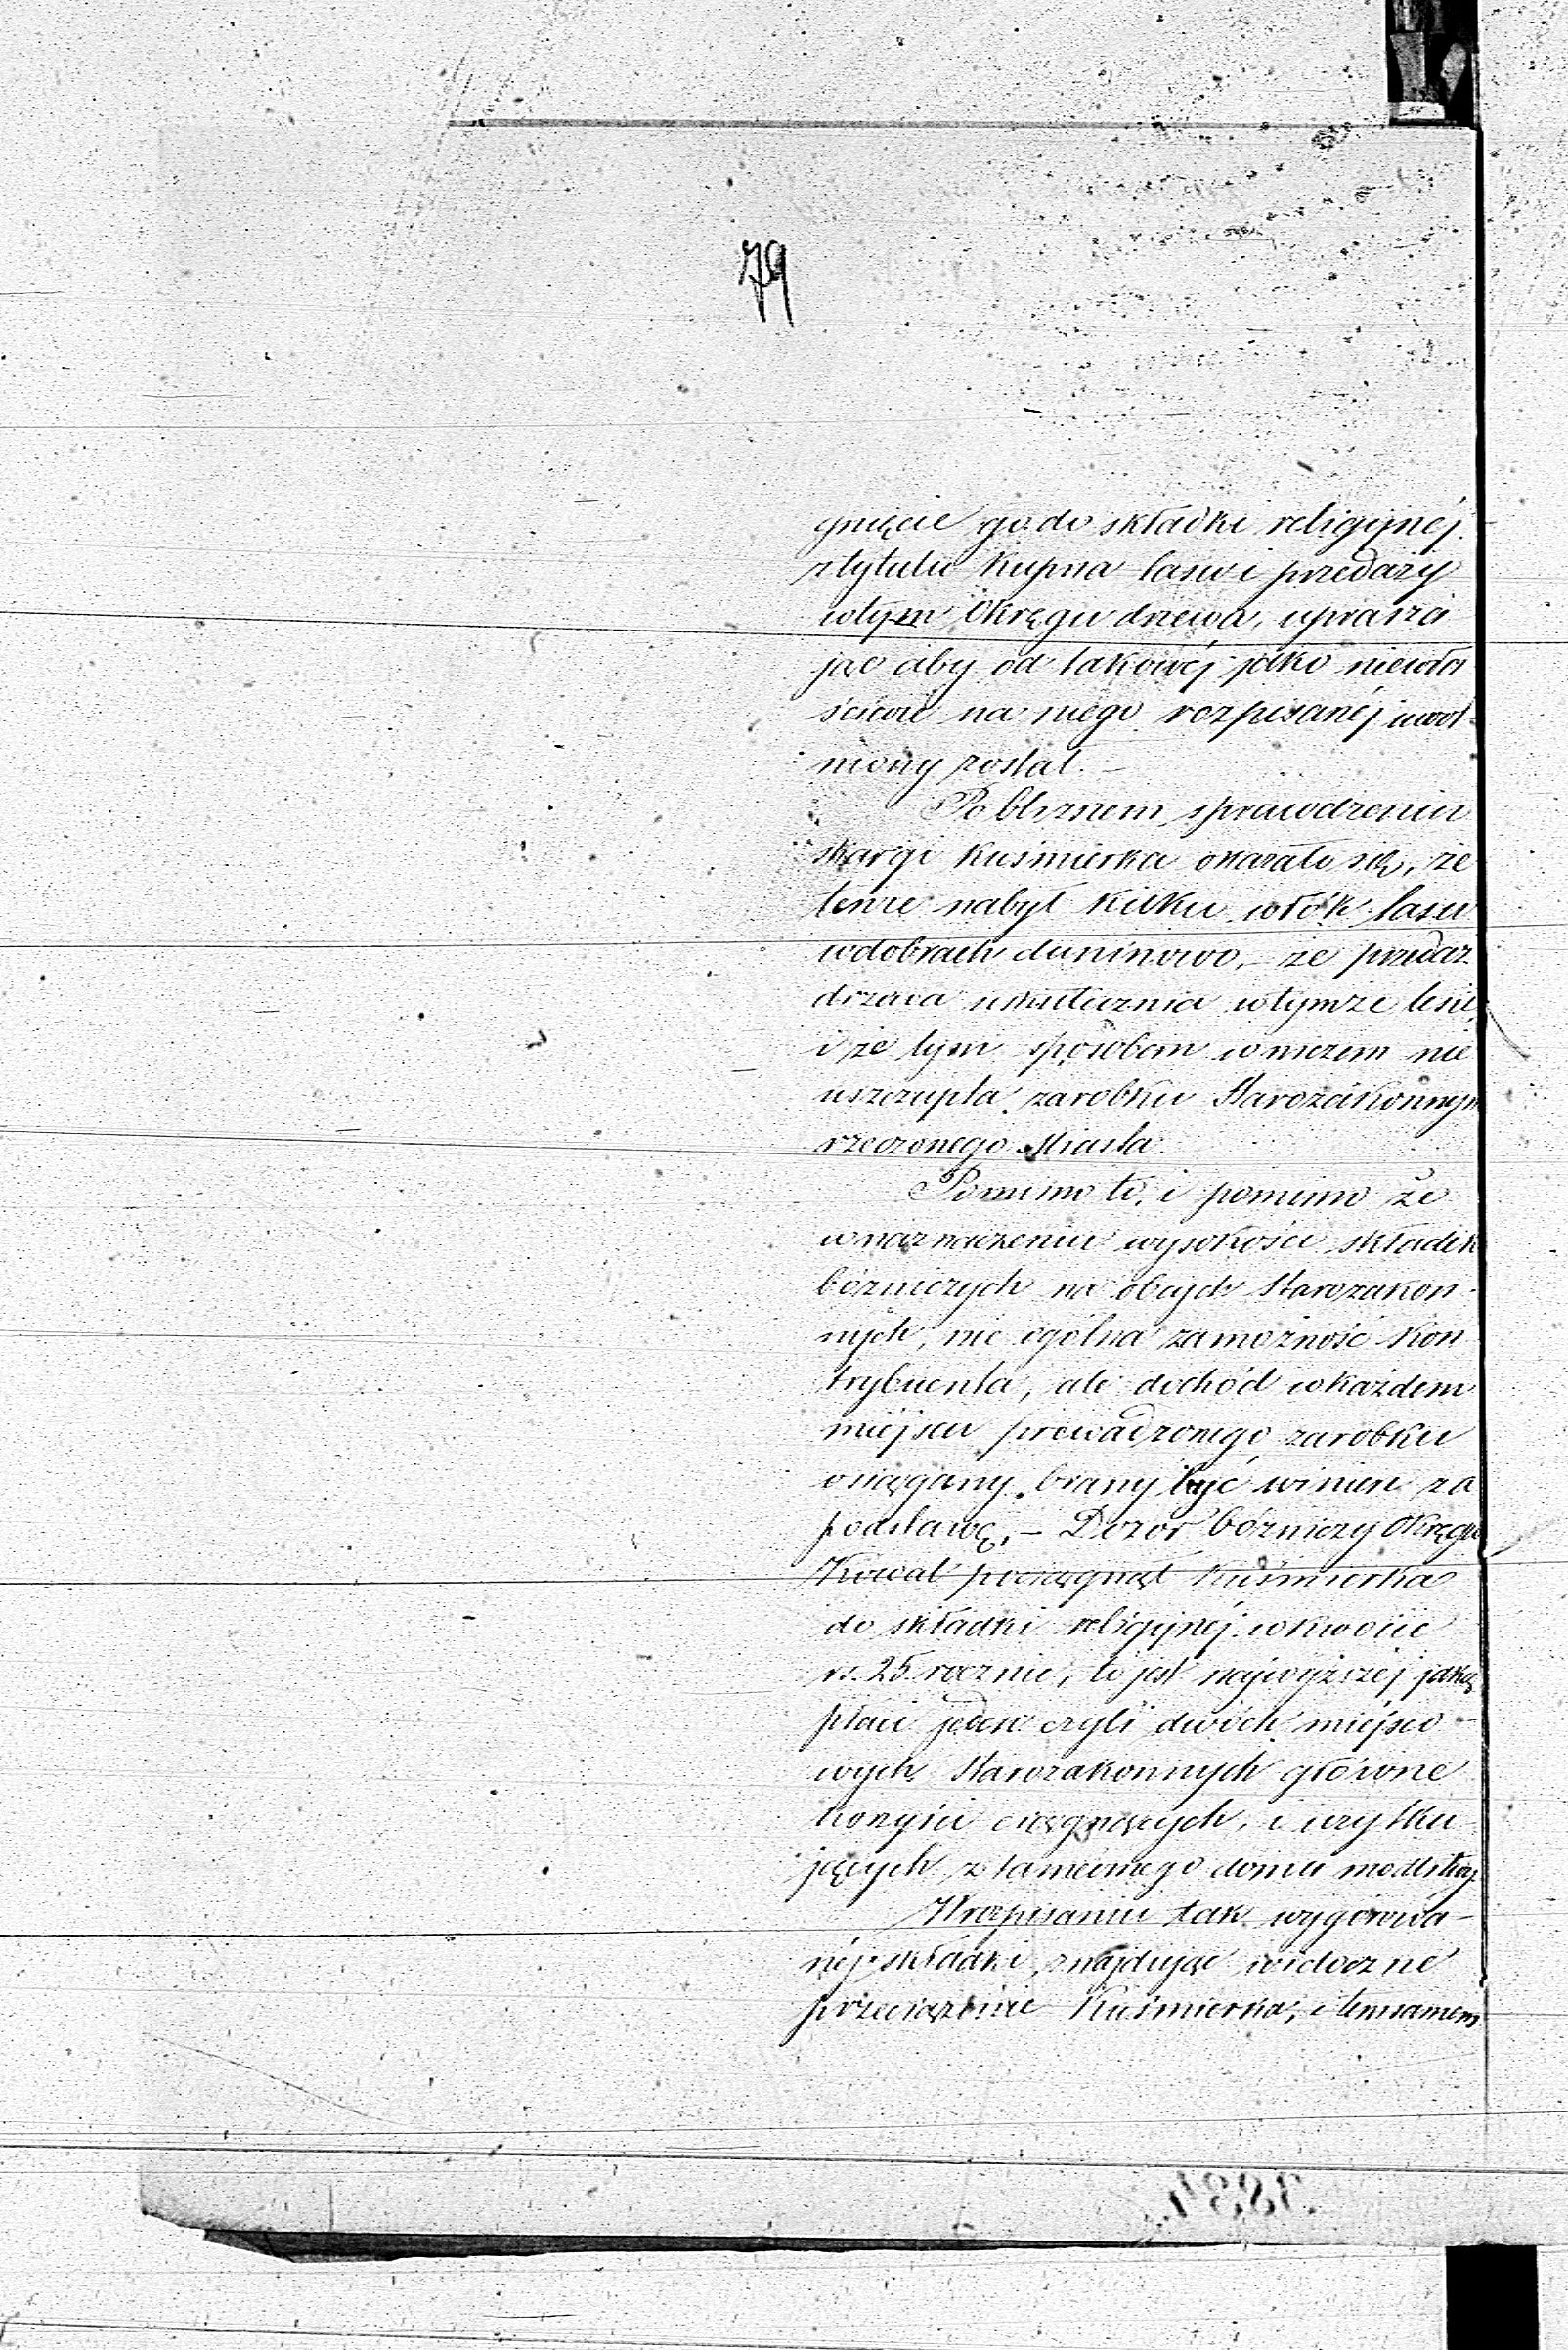 79
gnięcie go do składki religijnéj
z tytułu kupna lasu i przedaży
w tym Okręgu drzewa, uprasza
jąc aby od takowéj jako niewła
ściwie na niego rozpisanéj uwol-
niony został. –
Po bliższem sprawdzeniu
skargi Kuśmierka okazało się, że
tenże nabył kilku włók lasu
w dobrach duninowo, – że przedaż
drzewa uskutecznia w tymże lesie,
i że tym sposobem w niczem nie
uszczupla zarobku Starozakonnym
rzeczonego Miasta.
Pomimo to, i pomimo że
w naznaczeniu wysokości składek
bóżniczych na obcych Starozakon-
nych, nie ogólna zamożność kon
trybuenta, ale dochód w każdem
miejscu prowadzonego zarobku
osiągany, brany być winien za
podstawę, – Dozór bóżniczy Okręgu
Kowal pociągnął Kuśmierka
do składki religijnéj w kwocie
rs. 25 rocznie, to jest najwyższéj jaką
płaci jeden czyli dwóch miejsco-
wych Starozakonnych główne
korzyści ciągnących, i użytku
jących z tamecznego domu modlitwy.
W rozpisaniu tak wygórowa-
néj składki, znajdując widoczne
przeciążenie Kuśmierka, i temsamem